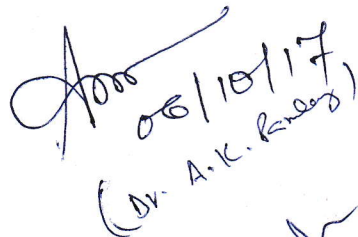 06/10/17
(Dr. A.K. Pandey)